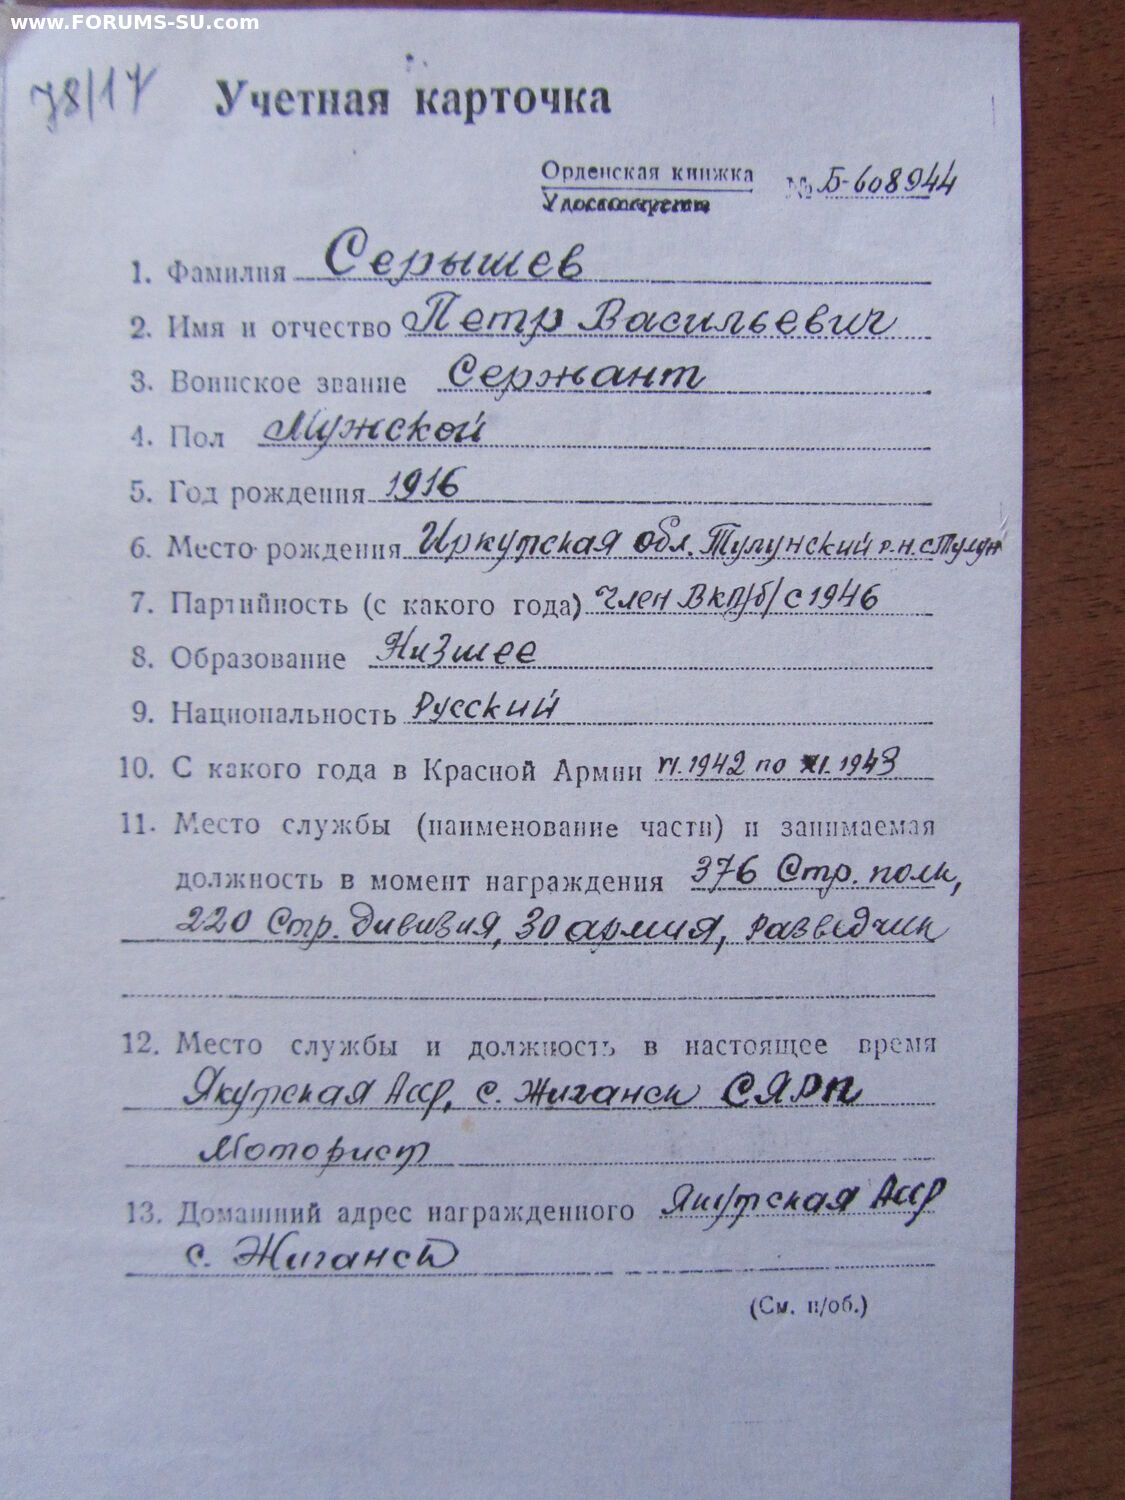 www.FORUMS-SU.com
78/17
Учетная карточка
Орденская книжка № Б-608944
Удостоверение
1. Фамилия Серышев
2. Имя и отчество Петр Васильевич
3. Воинское звание Сержант
4. Пол Мужской
5. Год рождения 1916
6. Место рождения Иркутская обл. Тулунский р.н. с Тулун
7. Партийность (с какого года) Член ВКП/б/ с 1946
8. Образование Низшее
9. Национальность Русский
10. С какого года в Красной Армии VI.1942 по XI.1943
11. Место службы (наименование части) и занимаемая
должность в момент награждения 376 Стр. полк,
220 Стр. дивизия, 30 армия, разведчик
12. Место службы и должность в настоящее время
Якутская Асср, с. Жиганск СЯРП
Моторист
13. Домашний адрес награжденного Якутская Асср
с. Жиганск
(См. н/об.)